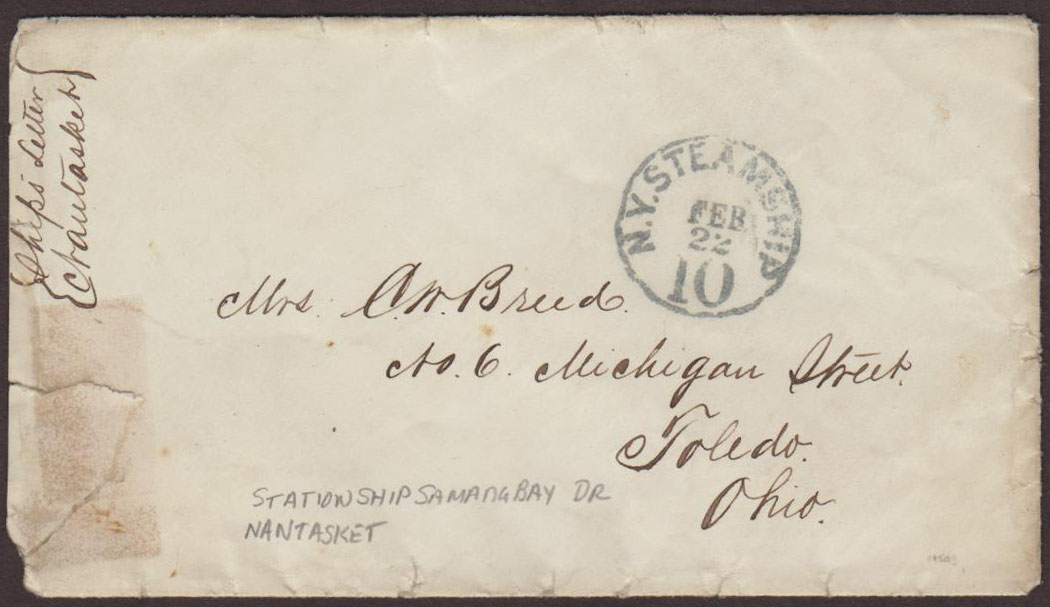 Ship's Letter
Nantasket
N.Y. STEAMSHIP
FEB
22
10
Mrs. C. W. Breed.
No. 6. Michigan Street.
Toledo.
Ohio.
STATION SHIP SAMANA BAY DR
NANTASKET